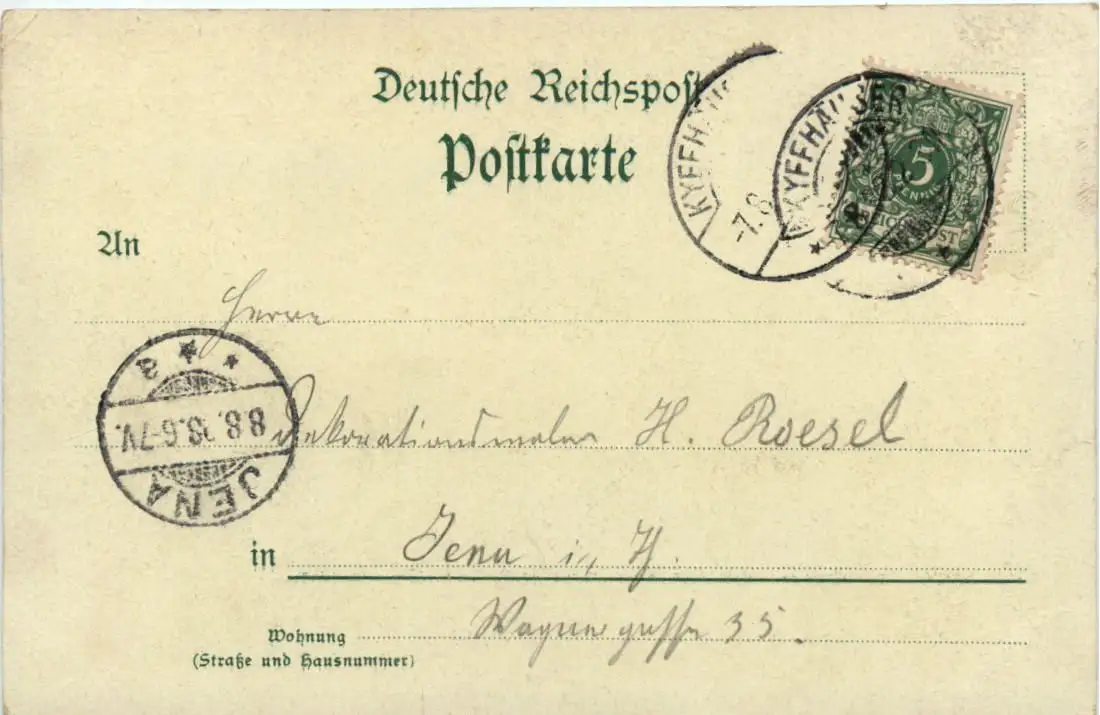 Deutsche Reichspost
Postkarte
KYFFHÄUSER
KYFFHÄUSER
-7.8
5
PFENNIG
REICHSPOST
An
Herrn
Dekorationsmaler H. Roesel
JENA
8.8.98.6-7V.
a
in Jena i. Th.
Wagnergasse 35.
Wohnung
(Straße und Hausnummer)